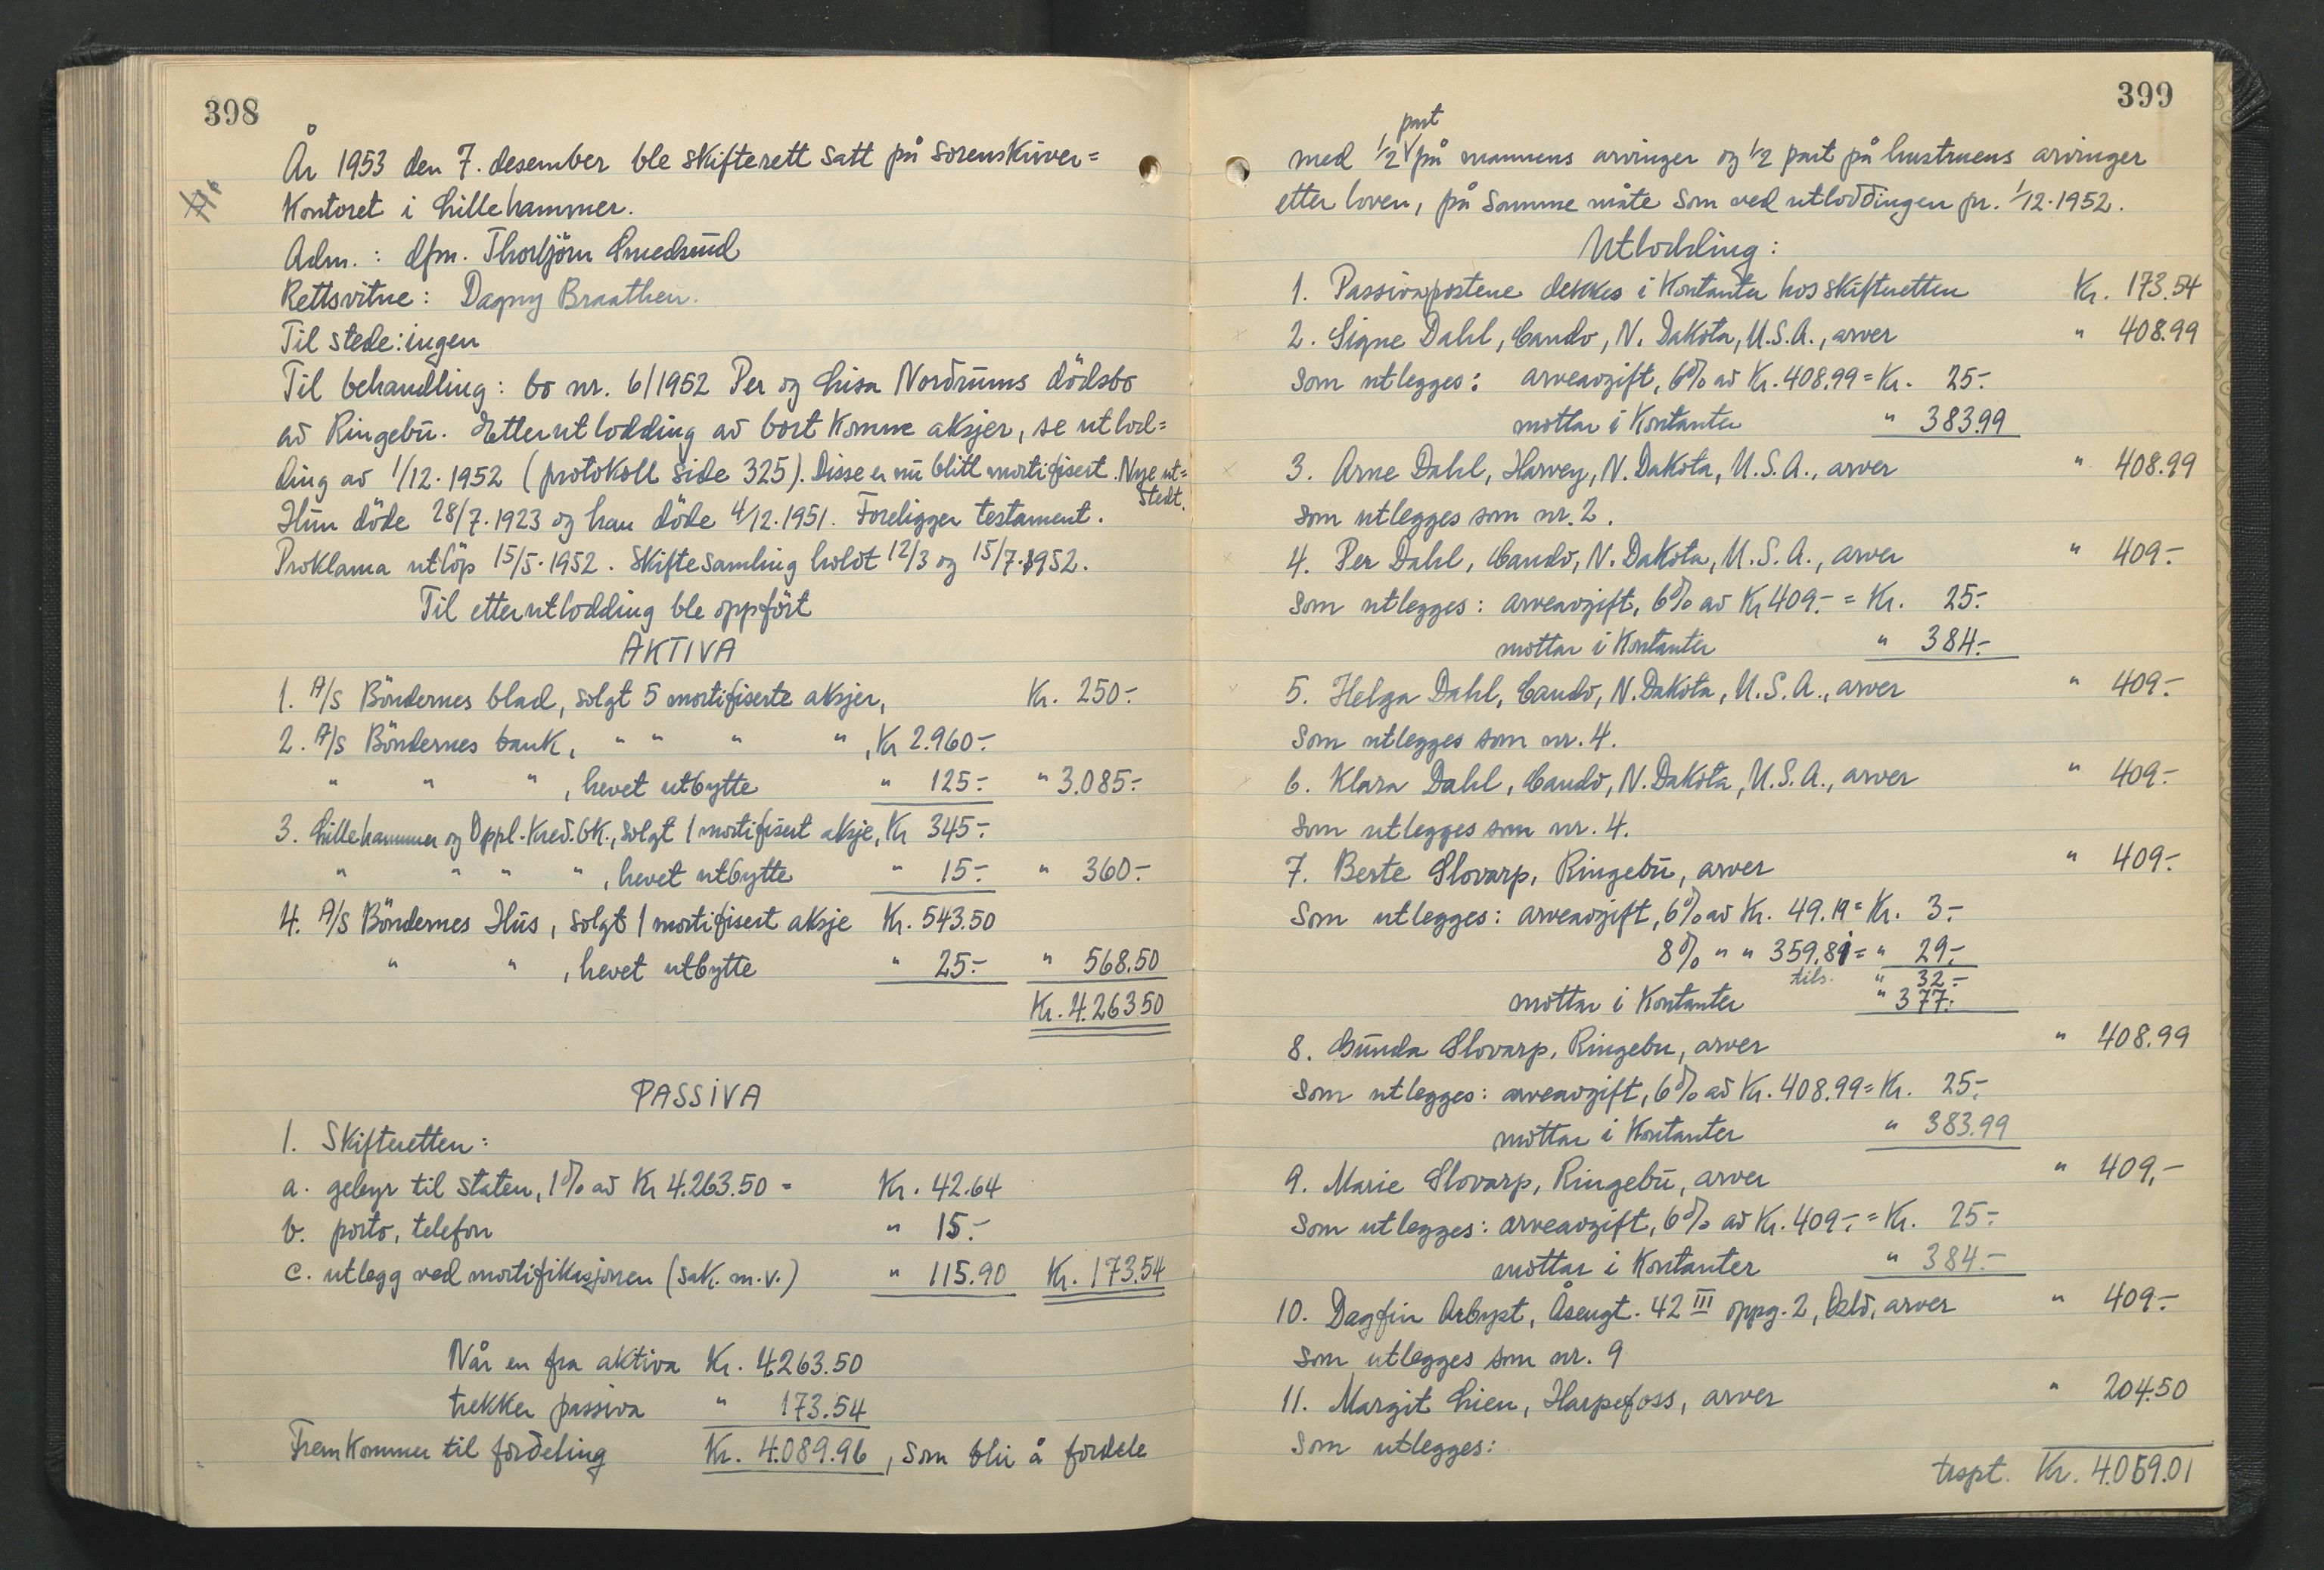 398
År 1953 den 7. desember ble skifterett satt på sorenskriver=
kontoret i Lillehammer.
Adm.: dfm. Thorbjörn Smedsrud
Rettsvitne: Dagny Braathen.
Til stede: ingen
Til behandling: bo nr. 6/1952 Per og Lisa Nordrums dödsbo
av Ringebu. Etterutlodding av bortkomne aksjer, se utlod=
ding av 1/12.1952 (protokoll side 325). Disse er nu blitt mortifisert. Nye ut=
stedt.
Hun döde 28/7.1923 og han döde 4/12.1951. Foreligger testament.
Proklama utlöp 15/5.1952. Skiftesamling holdt 12/3 og 15/7.1952.
Til etterutlodding ble oppfört
AKTIVA
1. A/S Böndernes blad, solgt 5 mortifiserte aksjer, Kr. 250.-
2. A/S Böndernes bank, " " " " , Kr 2.960.-
" " " , hevet utbytte " 125.- " 3.085.-
3. Lillehammer og Oppl. Kred.bk., solgt 1 mortifisert aksje, Kr 345.-
" " " " , hevet utbytte " 15.- " 360.-
4. A/S Böndernes Hus, solgt 1 mortifisert aksje Kr. 543.50
" " , hevet utbytte " 25.- " 568.50
Kr. 4.263.50
PASSIVA
1. Skifteretten:
a. gebyr til staten, 1% av Kr 4.263.50 = Kr. 42.64
b. porto, telefon " 15.-
c. utlegg ved mortifikasjonen (sak. m.v.) " 115.90 Kr. 173.54
Når en fra aktiva Kr. 4263.50
trekker passiva " 173.54
Fremkommer til fordeling Kr. 4.089.96, som blir å fordele
399
part
med 1/2 på mannens arvinger og 1/2 part på hustruens arvinger
etter loven, på samme måte som ved utloddingen pr. 1/12.1952.
Utlodding:
1. Passivapostene dekkes i kontanter hos skifteretten Kr. 173.54
2. Signe Dahl, Cando, N. Dakota, U.S.A., arver " 408.99
som utlegges: arveavgift, 6% av Kr. 408.99 = Kr. 25.-
mottar i kontanter " 383.99
3. Arne Dahl, Harvey, N. Dakota, U.S.A., arver " 408.99
som utlegges som nr. 2.
4. Per Dahl, Cando, N. Dakota, U.S.A., arver " 409.-
som utlegges: arveavgift, 6% av Kr 409.- = Kr. 25.-
mottar i kontanter " 384.-
5. Helga Dahl, Cando, N. Dakota, U.S.A., arver " 409.-
som utlegges som nr. 4.
6. Klara Dahl, Cando, N. Dakota, U.S.A., arver " 409.-
som utlegges som nr. 4.
7. Berte Slovarp, Ringebu, arver " 409.-
som utlegges: arveavgift, 6% av Kr. 49.19 = Kr. 3.-
8% " " 359.81 = " 29.-
tils. " 32.-
mottar i kontanter " 377.-
8. Gunda Slovarp, Ringebu, arver " 408.99
som utlegges: arveavgift, 6% av Kr. 408.99 = Kr. 25.-
mottar i kontanter " 383.99
9. Marie Slovarp, Ringebu, arver " 409,-
som utlegges: arveavgift, 6% av Kr. 409.- = Kr. 25.-
mottar i kontanter " 384.-
10. Dagfin Arbyst, Åsengt. 42 III oppg. 2, Oslo, arver " 409.-
som utlegges som nr. 9
11. Margit Lien, Harpefoss, arver " 204.50
som utlegges:
trspt. Kr. 4.059.01